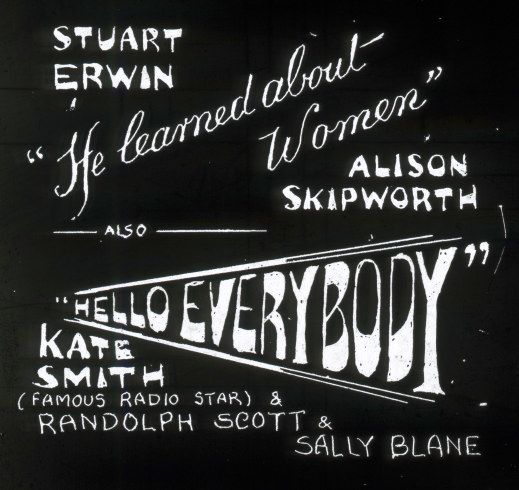 STUART
ERWIN
"He learned about
Women"
ALISON
SKIPWORTH
ALSO
"HELLO EVERYBODY"
KATE
SMITH
(FAMOUS RADIO STAR) &
RANDOLPH SCOTT &
SALLY BLANE